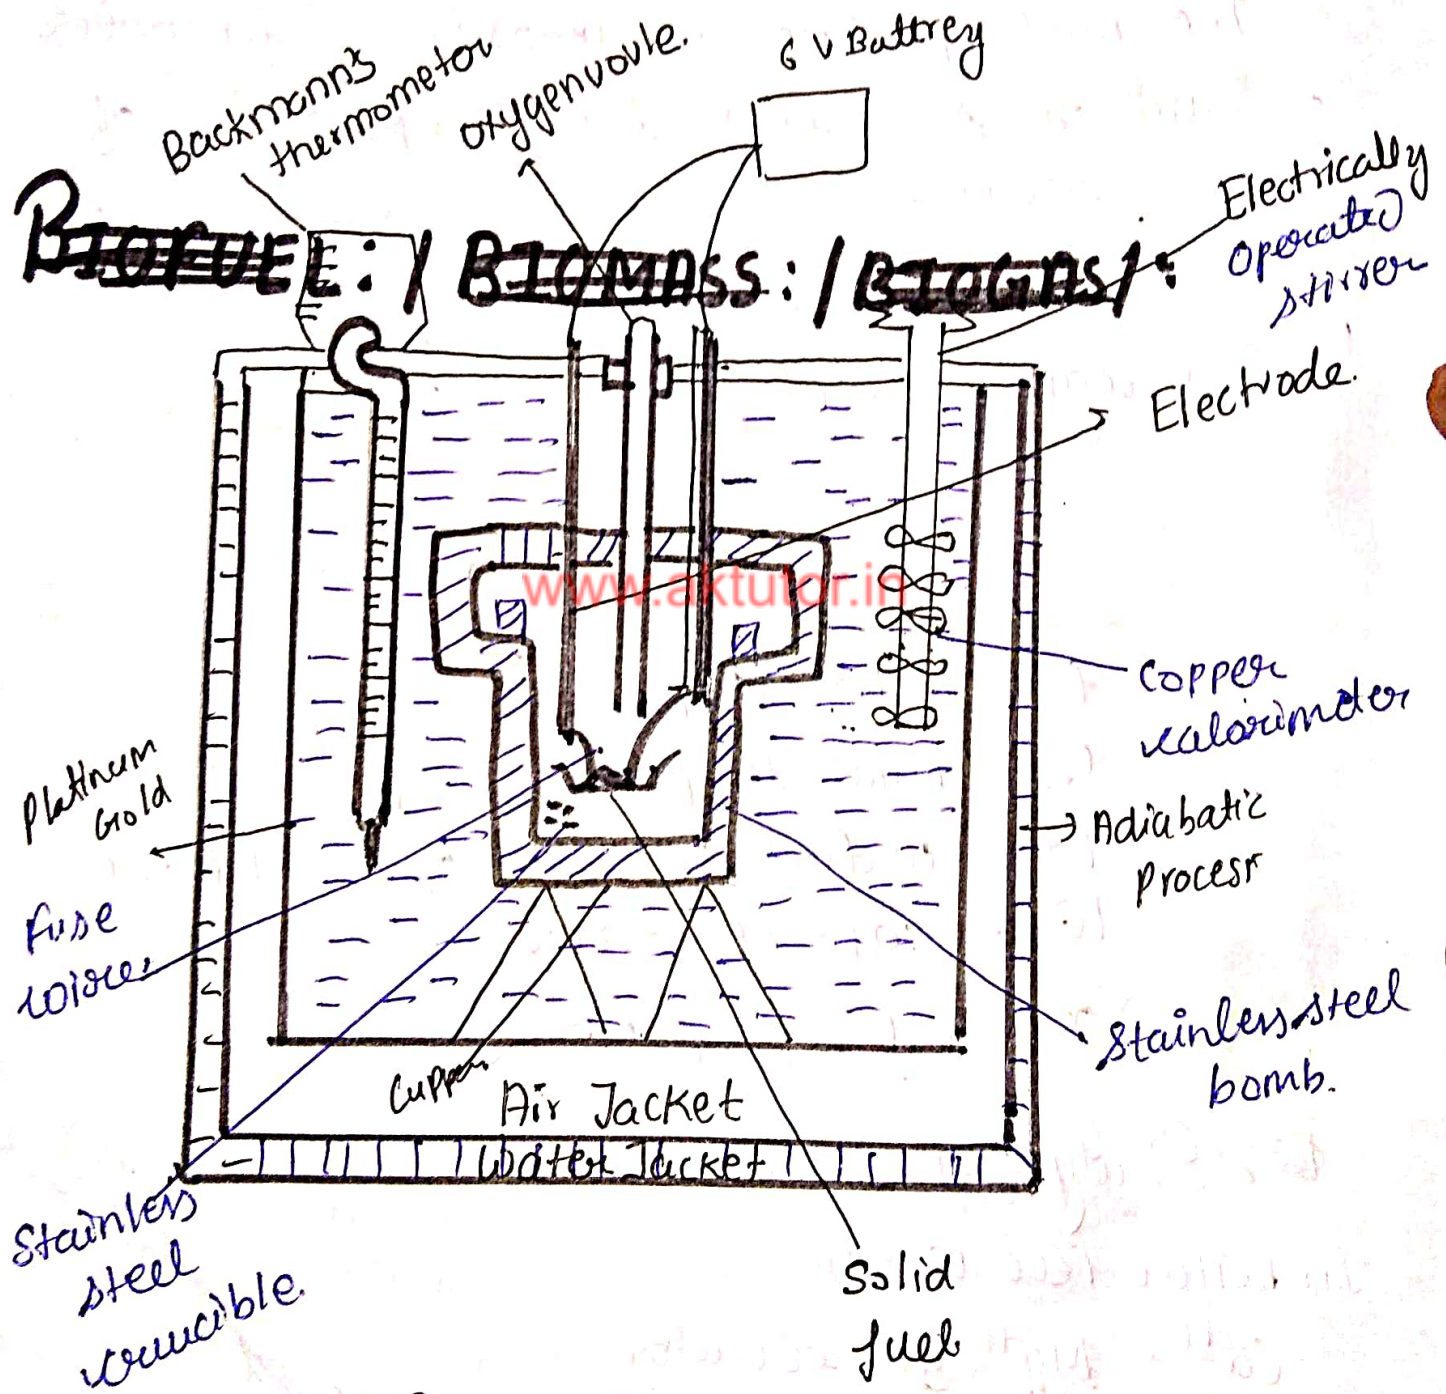 Backmann's
thermometor
oxygenvovle.
6 V Battrey
Electrically
operated
stirrer
BIOFUEL:/ BIOMASS:/BIOGAS/:
Electrode.
www.aktutor.in
Copper
calorimeter
Plattnum
Gold
Adiabatic
Process
Fuse
wire.
Stainless steel
bomb.
Cupper
Air Jacket
Water Jacket
Stainless
steel
crucible.
Solid
fuel